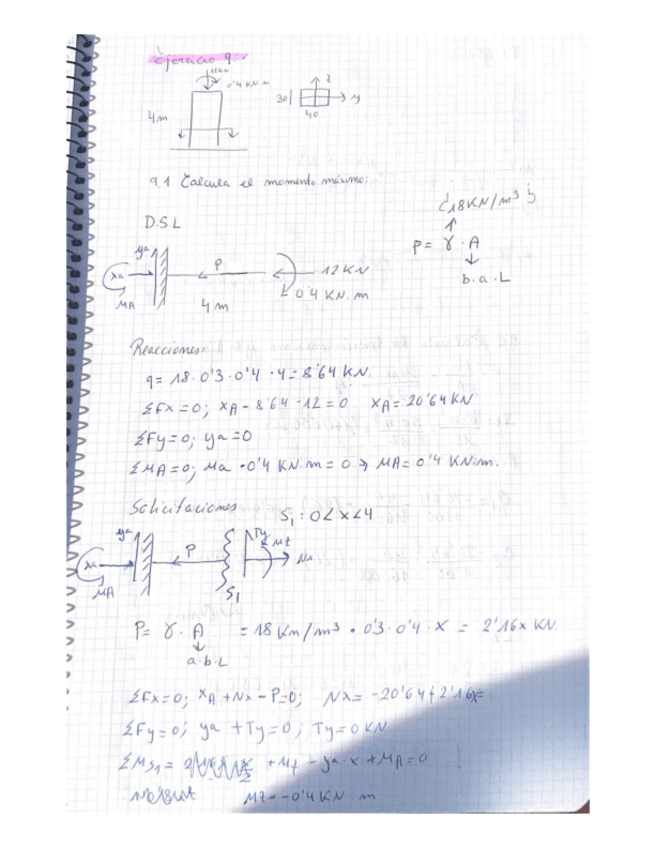 Ejercicio 9.
0'4 KN·m
4m
30
z
y
40
9.1 Calcula el momento máximo:
D.S.L
18KN/m³
P = γ · A
b·a·L
ya
xa
MA
P
12 KN
0'4 KN·m
4 m
Reacciones
q= 18·0'3·0'4·4= 8'64 KN
ΣFx=0; xA - 8'64 -12=0 xA= 20'64 KN
ΣFy=0; ya=0
ΣMA=0; Ma -0'4 KN·m = 0 → MA= 0'4 KN·m.
Solicitaciones S₁: 0<x<4
ya
xa
MA
P
Ty
Mz
Nx
S₁
P= γ · A = 18 Kn/m³ · 0'3·0'4·x = 2'16x KN.
a·b·L
ΣFx=0; xA +Nx -P=0; Nx= -20'64+2'16x
ΣFy=0; ya +Ty=0; Ty=0 KN
ΣMS₁= +Mz - ya·x +MA=0
Mz= -0'4 KN m